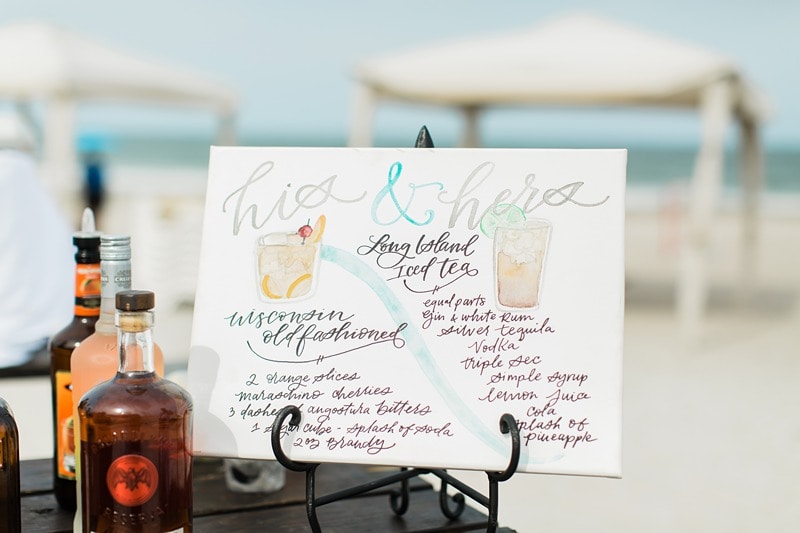 his & hers
Long Island
Iced tea
equal parts
Gin & white Rum
silver tequila
Vodka
triple sec
simple syrup
lemon juice
cola
splash of
pineapple
wisconsin
old fashioned
2 orange slices
maraschino cherries
3 dashes of angostura bitters
1 sugar cube - splash of soda
2 oz Brandy